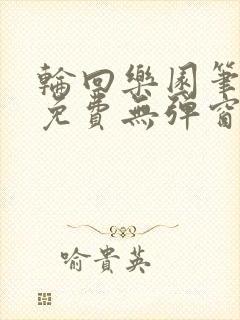 輪回樂園筆
免費無彈窗
喻貴英